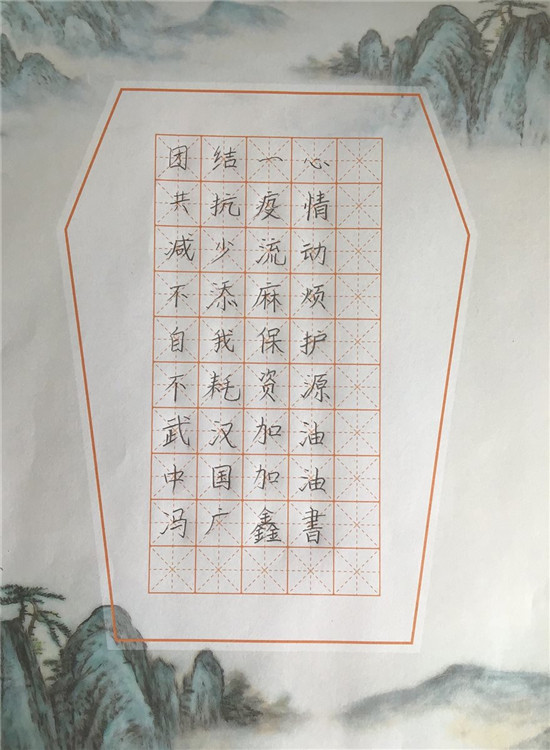 团结一心
共抗疫情
减少流动
不添麻烦
自我保护
不耗资源
武汉加油
中国加油
冯广鑫書